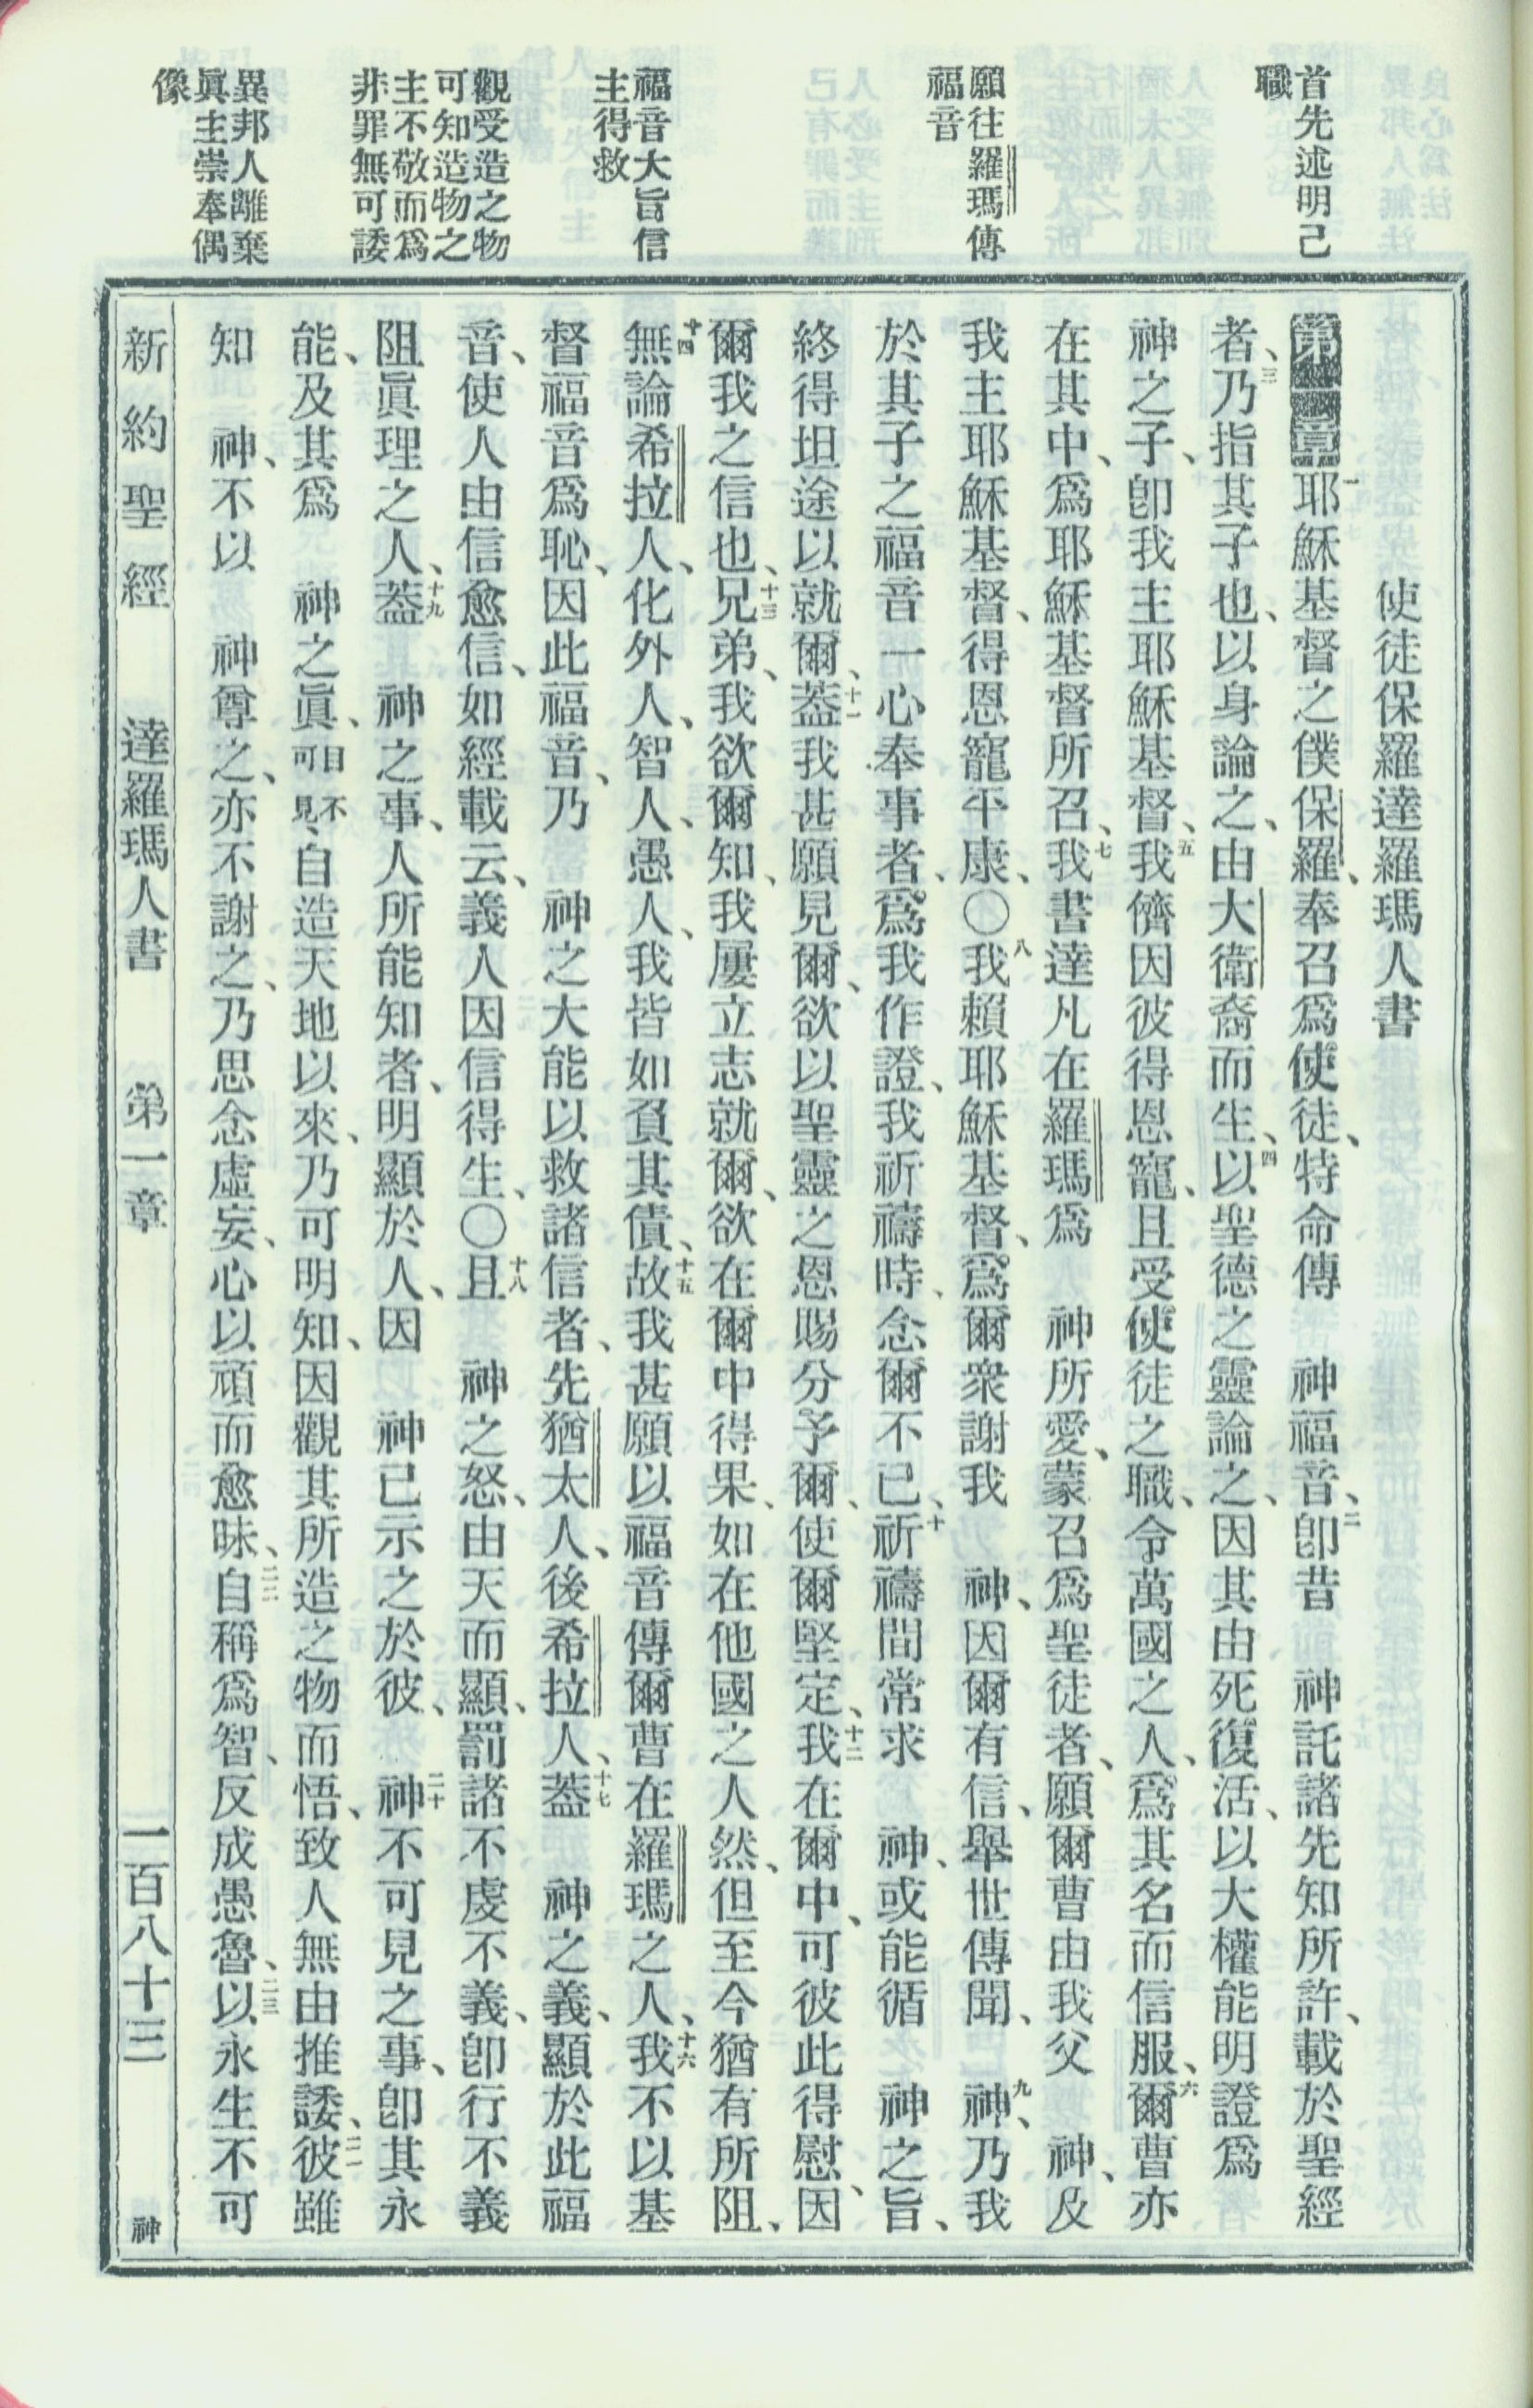 首先述明己
職
願往羅瑪傳
福音
福音大旨信
主得救
觀受造之物
可知造物之
主不敬而爲
非罪無可諉
異邦人離棄
眞主崇奉偶
像
使徒保羅達羅瑪人書
第一章一耶穌基督之僕保羅、奉召爲使徒、特命傳　神福音、二卽昔　神託諸先知所許、載於聖經
者、三乃指其子也、以身論之、由大衛裔而生、四以聖德之靈論之、因其由死復活、以大權能明證爲
神之子、卽我主耶穌基督、五我儕因彼得恩寵、且受使徒之職、令萬國之人、爲其名而信服、六爾曹亦
在其中、爲耶穌基督所召、七我書達凡在羅瑪爲　神所愛、蒙召爲聖徒者、願爾曹由我父　神、及
我主耶穌基督、得恩寵平康、〇八我賴耶穌基督、爲爾衆謝我　神、因爾有信、舉世傳聞、九神、乃我
於其子之福音一心奉事者、爲我作證、我祈禱時、念爾不已、十祈禱間常求　神、或能循　神之旨、
終得坦途以就爾、十一葢我甚願見爾、欲以聖靈之恩賜分予爾、使爾堅定、十二我在爾中、可彼此得慰、因
爾我之信也、十三兄弟、我欲爾知、我屢立志就爾、欲在爾中得果、如在他國之人然、但至今猶有所阻、
十四無論希拉人、化外人、智人、愚人、我皆如負其債、十五故我甚願以福音傳爾曹在羅瑪之人、十六我不以基
督福音爲恥、因此福音、乃　神之大能以救諸信者、先猶太人、後希拉人、十七葢　神之義、顯於此福
音、使人由信愈信、如經載云、義人因信得生、〇十八且　神之怒、由天而顯、罰諸不虔不義、卽行不義
阻眞理之人、十九葢　神之事、人所能知者、明顯於人、因　神已示之於彼、二十神不可見之事、卽其永
能、及其爲　神之眞、目不可見、自造天地以來、乃可明知、因觀其所造之物而悟、致人無由推諉、二一彼雖
知　神、不以　神尊之、亦不謝之、乃思念虛妄、心以頑而愈昧、二二自稱爲智、反成愚魯、二三以永生不可
新約聖經　達羅瑪人書　第一章　一百八十三　神